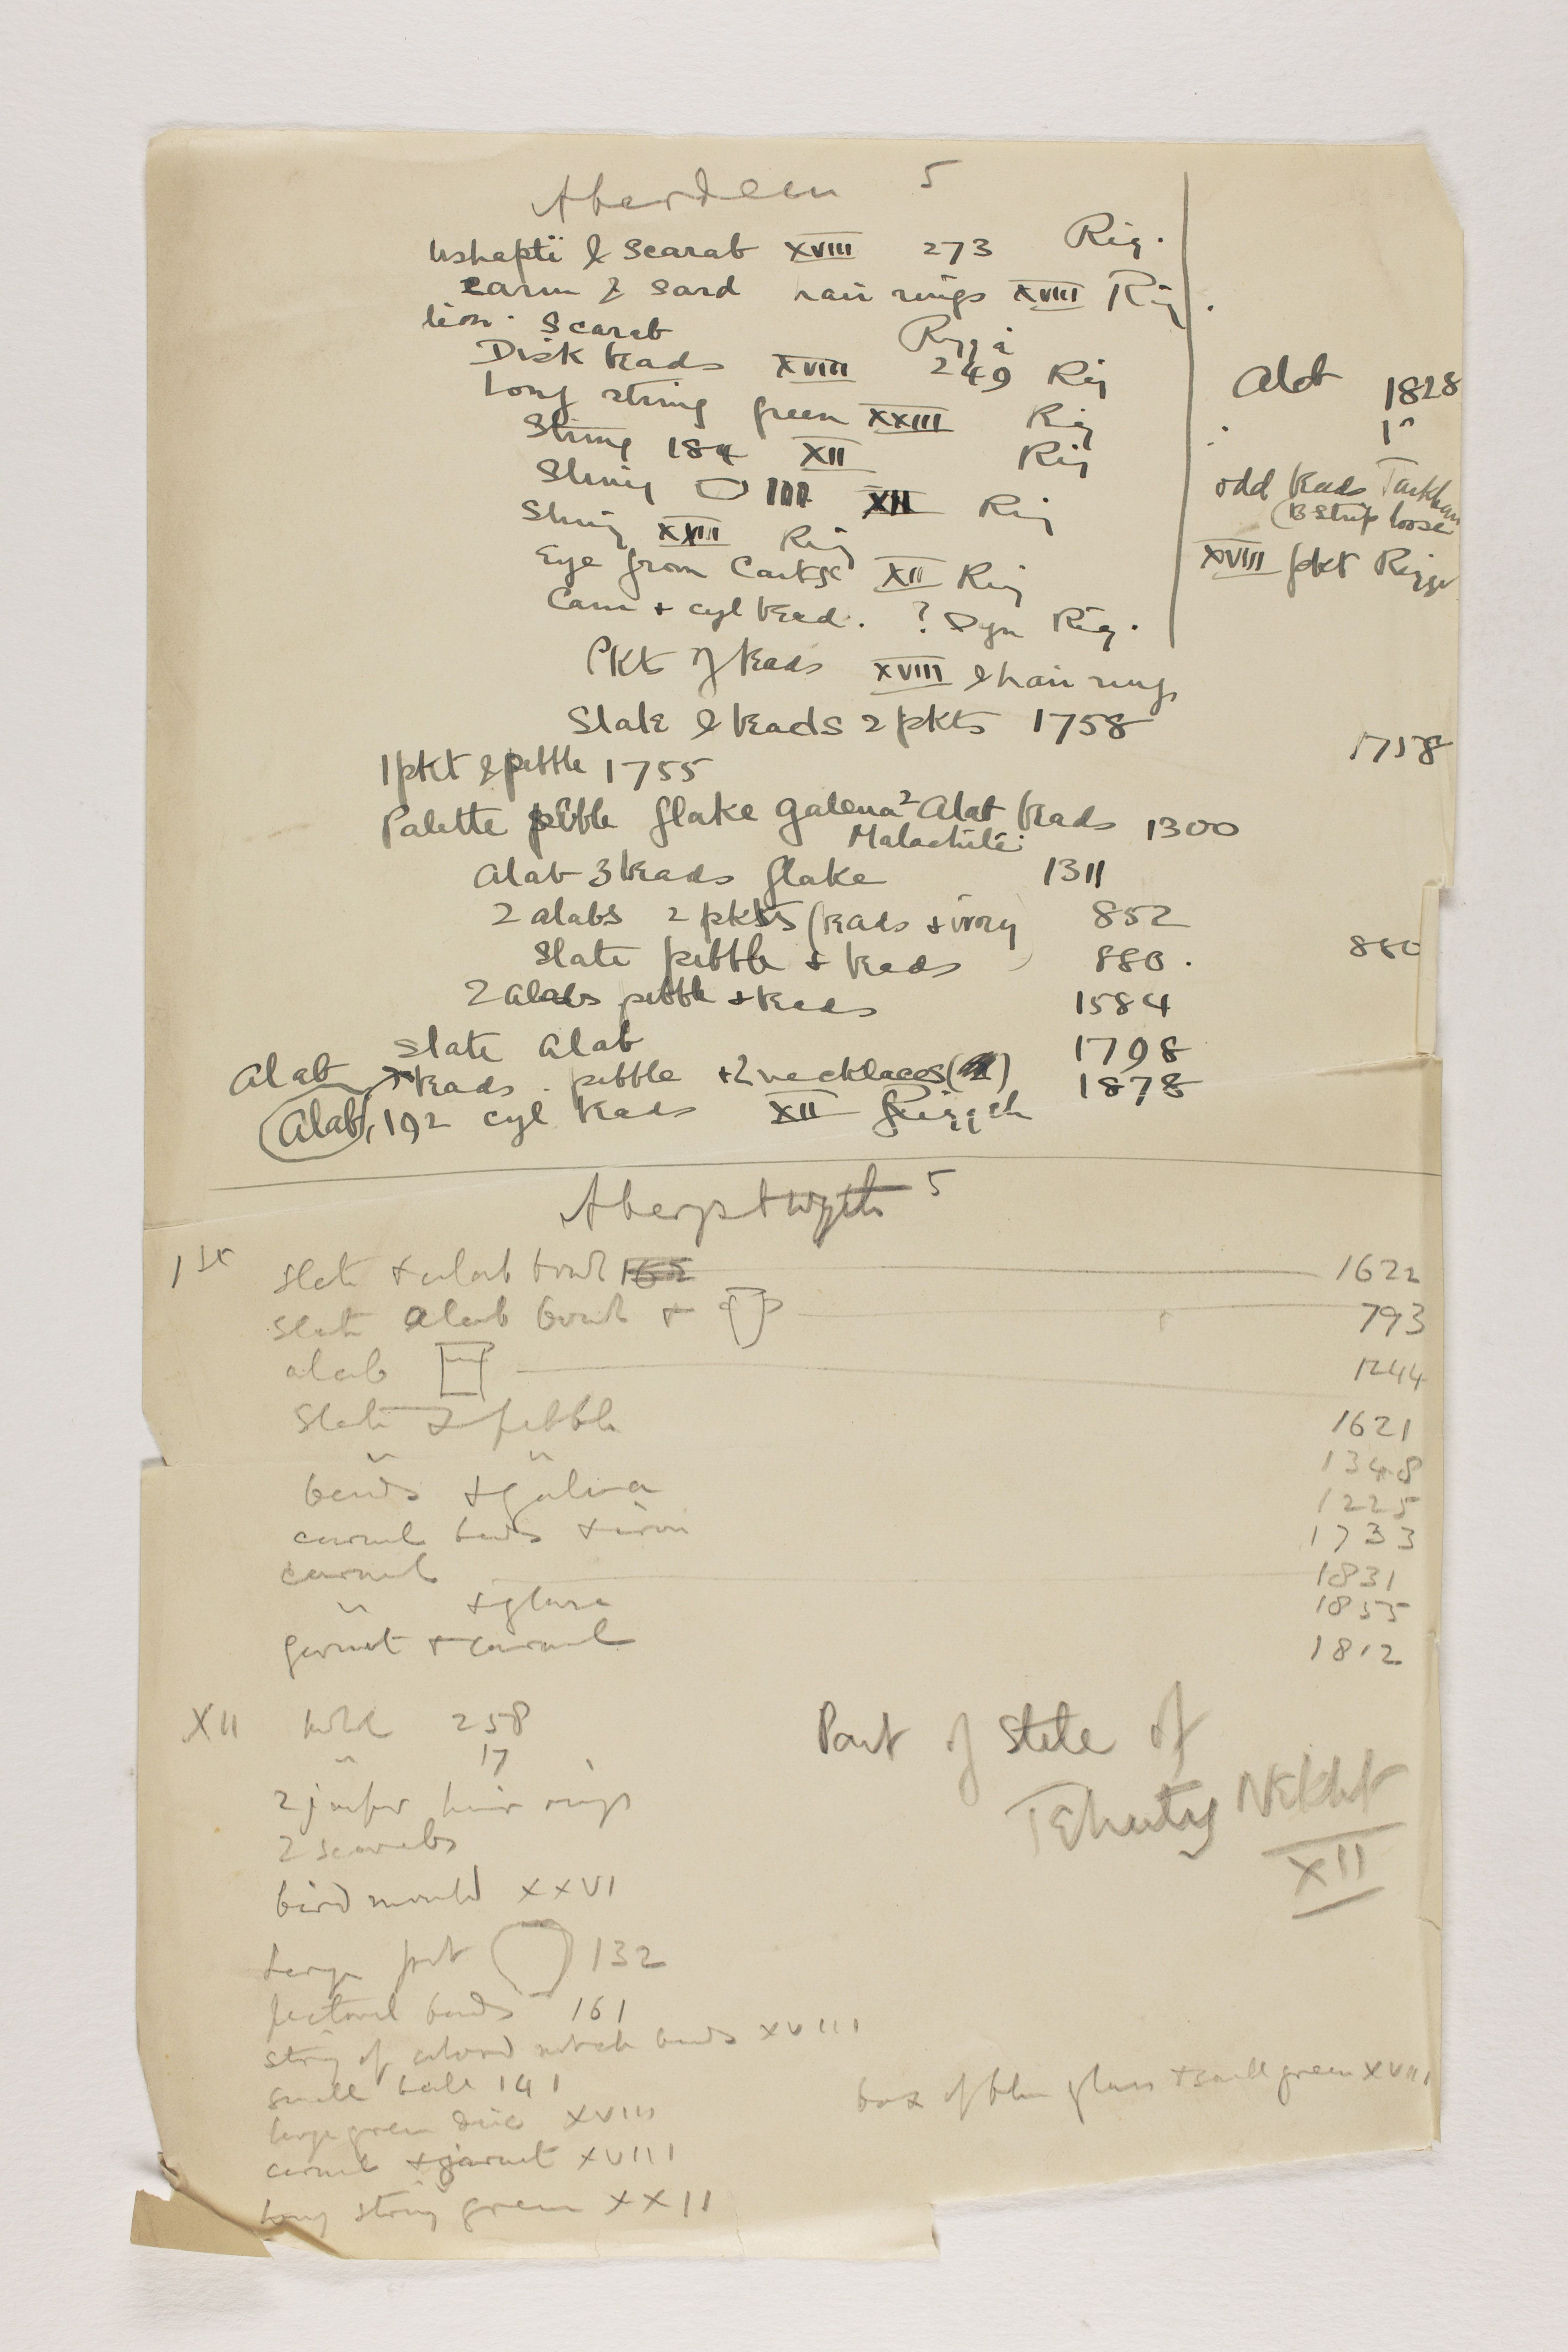 Aberdeen 5
Ushapti & Scarab XVIII 273 Riq.
carn & sard hair rings XVIII Riq.
lion. Scarab Riqqa
Disk beads XVIII 249 Riq
Long string green XXIII Riq
String 184 XII Riq
String XII Riq
String XVIII Riq
Eye from Cart XII Riq
Carn + cyl bead. ? Dyn Riq.
Pkt of beads XVIII & hair rings
Alab 1828
odd beads Tarkhan
(B strip loose
XVIII pkt Riqqa
Slate & beads 2 pkts 1758 1758
1 pkt & pebble 1755
Palette pebble flake galena 2 Alab beads 1300
Malachite
Alab 3 beads flake 1311
2 alabs 2 pkts (beads + ivory) 852
Slate pebble + beads 880. 880
2 alabs pebble + beads 1584
slate alab 1798
Alab beads. pebble + 2 necklaces 1878
Alab, 192 cyl beads XII Riqqeh
Aberystwyth 5
1st slate + alab bowl 1622
slate alab bowl + 793
alab 1244
Slate & pebble 1621
" " 1348
beads + galena 1225
carnel beads + iron 1733
carnel 1831
" + glaze 1855
garnet + carnel 1812
XII 258
" 17
2 jasper hair rings
2 scarabs
bird mould XXVI
Part of Stele of
Tehuty Nekht
XII
Large pot 132
pectoral beads 161
string of beads XVIII
small 141
box of blue glass + small green XVIII
large green disc XVIII
carnel + garnet XVIII
long string green XXII